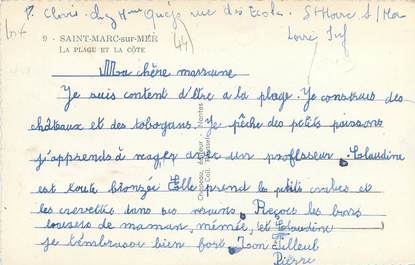 P. Clovis chez Mme Quéjo rue des Ecoles. St Marc S/Mer
Loire Inf
(44)
9 - SAINT-MARC-sur-MER
LA PLAGE ET LA CÔTE
Ma chère marraine
Je suis content d'être a la plage. Je construis des
châteaux et des tobogans. Je pêche des petits poissons
j'apprends à nager avec un proffesseur. Claudine
est toute bronzée Elle prend les petits crabes et
les crevettes dans ses mains. Reçois les bons
baisers de maman, mémée, et Claudine
je t'embrasse bien fort. Ton filleul
Pierre